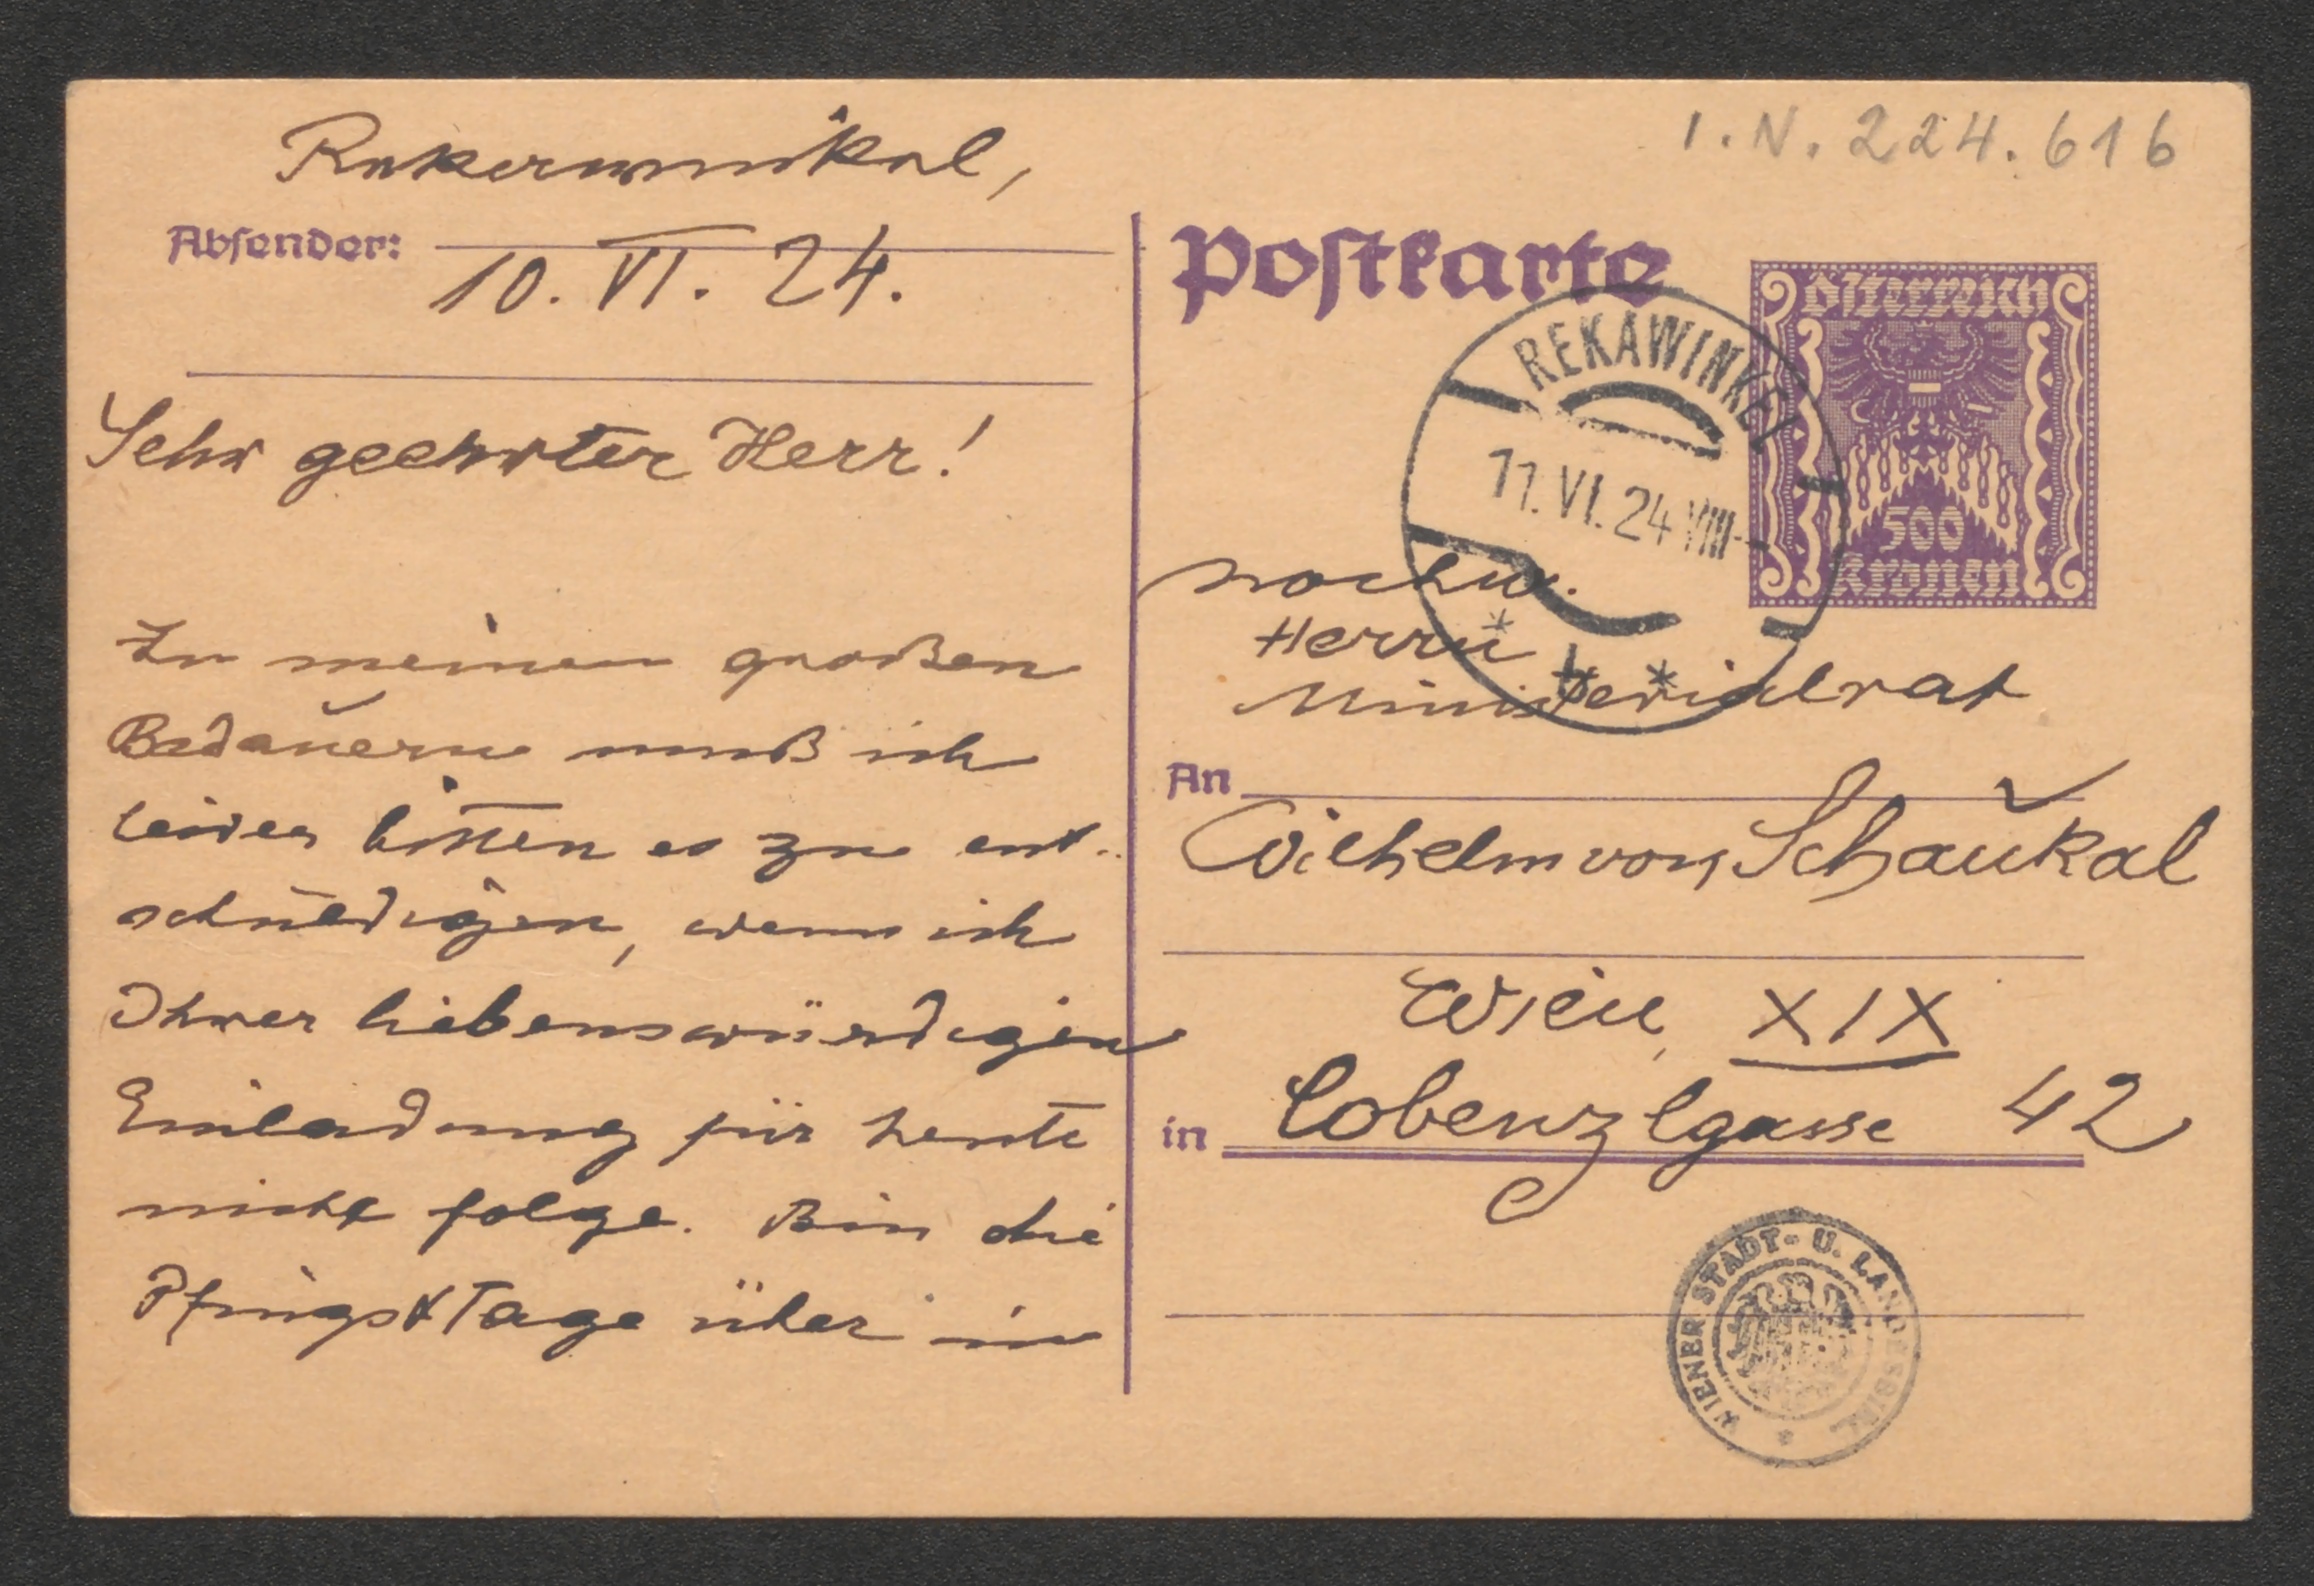 I. N. 224.616
Rekawinkel,
Absender:
10. VI. 24.
Sehr geehrter Herr!
Zu meinem großen
Bedauern muß ich
leider bitten es zu ent-
schuldigen, wenn ich
Ihrer liebenswürdigen
Einladung für heute
nicht folge. Bin die
Pfingsttage über in
Postkarte
Österreich
500
Kronen
REKAWINKEL
11. VI. 24 VIII
* * *
Hochw.
Herrn
Ministerialrat
An
Wilhelm von Schaukal
Wien, XIX
in Cobenzlgasse 42
WIENER STADT- U. LANDESBIBL.